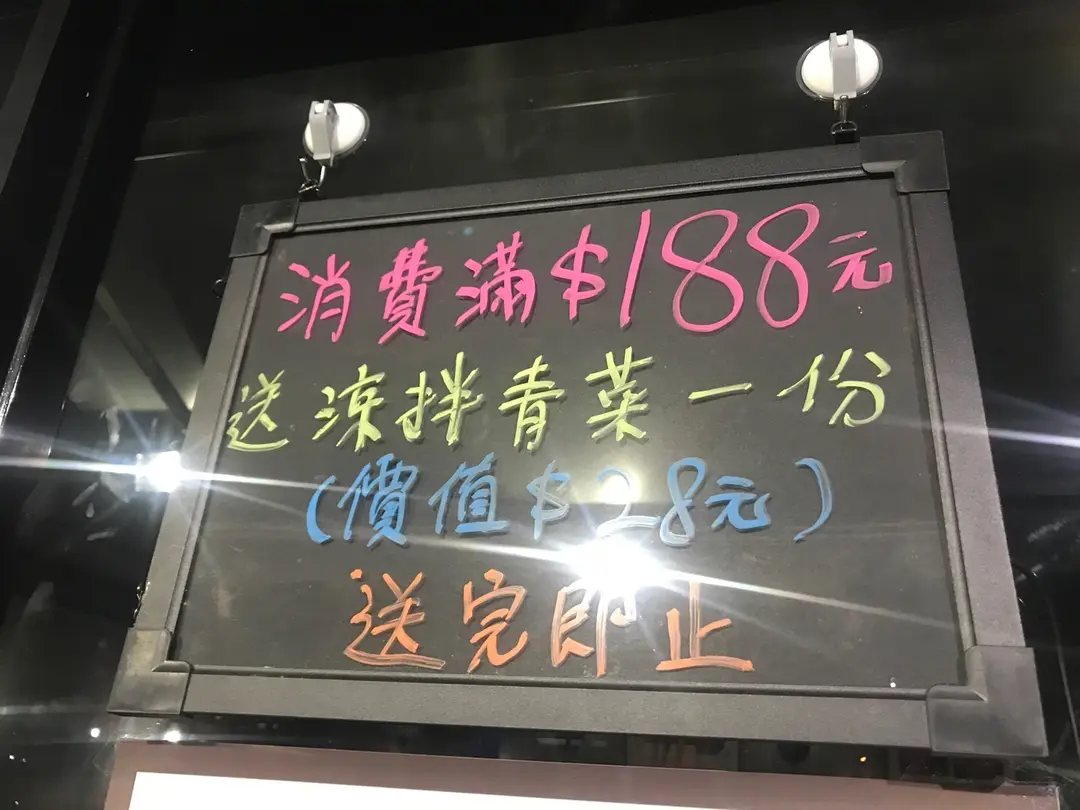 消費滿$188元
送涼拌青菜一份
(價值$28元)
送完即止